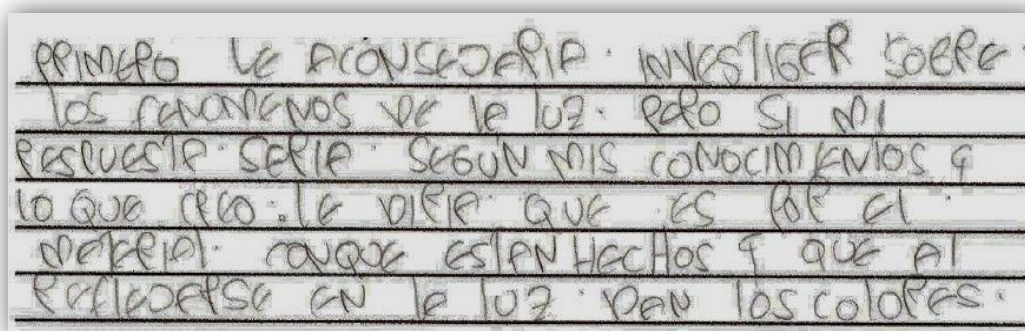 PRIMERO LE ACONSEJARIA. INVESTIGAR SOBRE
LOS FENOMENOS DE LA LUZ. PERO SI MI
RESPUESTA. SERIA. SEGUN MIS CONOCIMIENTOS Y
LO QUE CREO. LE DIRIA QUE ES POR EL
MATERIAL. CONQUE ESTAN HECHOS Y QUE AL
REFLEJARSE EN LA LUZ. DAN LOS COLORES.